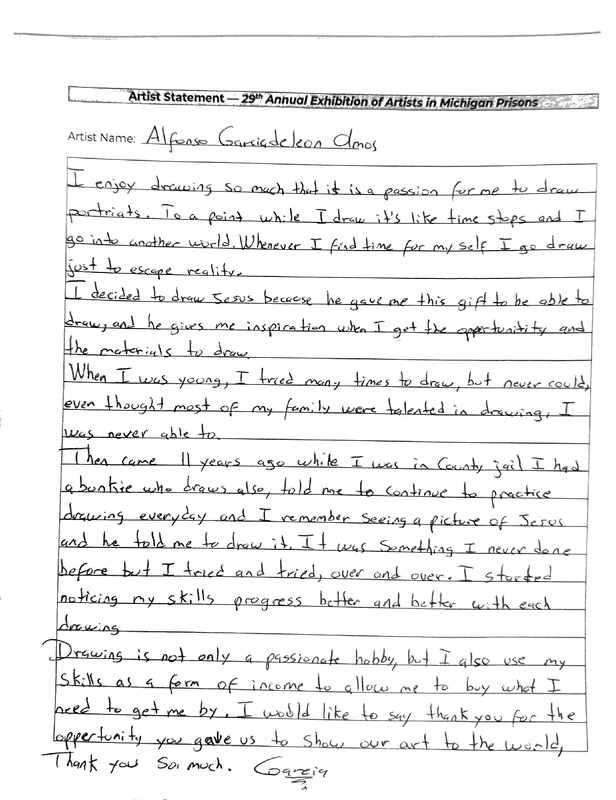 Artist Statement — 29th Annual Exhibition of Artists in Michigan Prisons
Artist Name: Alfonso Garciadeleon Amos
I enjoy drawing so mach that it is a passion for me to draw
portriats. To a point while I draw it's like time stops and I
go into another world. Whenever I find time for my self I go draw
just to escape reality.
I decided to draw Jesus because he gave me this gift to be able to
draw, and he gives me inspiration when I get the opportunitity and
the materials to draw.
When I was young, I tried many times to draw, but never could,
even thought most of my family were talented in drawing, I
was never able to.
Then came 11 years ago while I was in County jail I had
a bunkie who draws also, told me to continue to practice
drawing everyday and I remember seeing a picture of Jesus
and he told me to draw it. It was something I never done
before but I tried and tried, over and over. I started
noticing my skills progress better and better with each
drawing
Drawing is not only a passionate hobby, but I also use my
skills as a form of income to allow me to buy what I
need to get me by. I would like to say thank you for the
opportunity you gave us to show our art to the world,
Thank you so much. Garcia